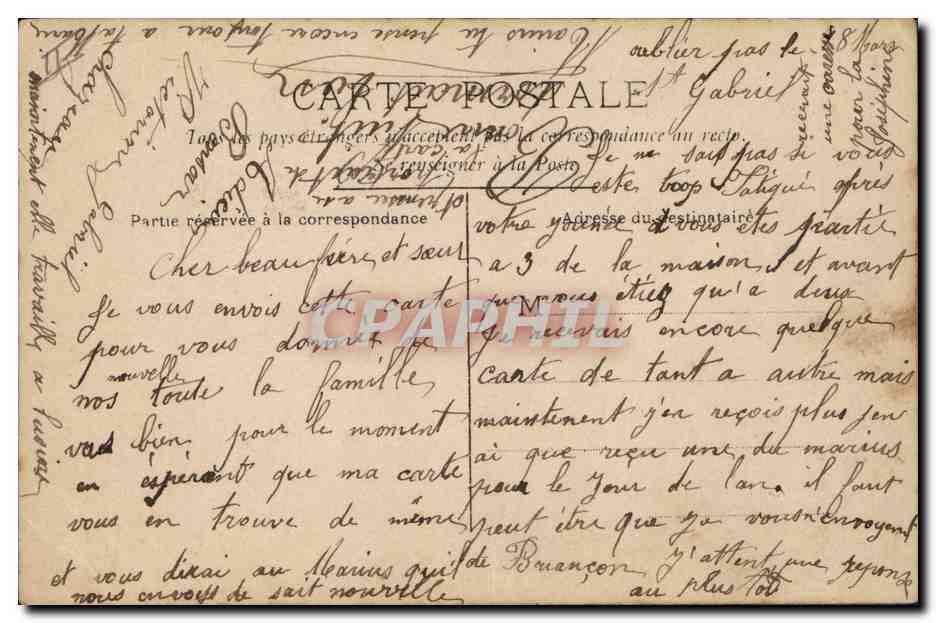 CARTE POSTALE
Tous les pays étrangers n'acceptent pas la correspondance au recto.
Se renseigner à la Poste
Partie réservée à la correspondance
Adresse du destinataire
M
CPAPHIL
Cher beau frère et sœur
Je vous envois cette carte
pour vous donner de
nos nouvelle toute la famille
vas bien pour le moment
en espérent que ma carte
vous en trouve de même
et vous dirai au Marius quil
nous envois de sait nouvelle
Je ne sait pas si vous
este trop fatigué après
votre journé vous êtes partie
a 3 de la maison et avant
que vous étiez qu'a deux
Je recevais encore quelque
carte de tant a autre mais
maintenent j'en reçois plus j'en
ai que reçu une du marius
pour le Jour de lan il faut
peut être que je vous n'envoyent
de Briançon J'attent une reponse
au plus tôt
oublier pas le 18 Mars
St Gabriel
pour la
Joséphine
Marius tu pense encore toujour a
Adieu
Bonsoir
Victorine Gabriel
maintenent elle travaille a